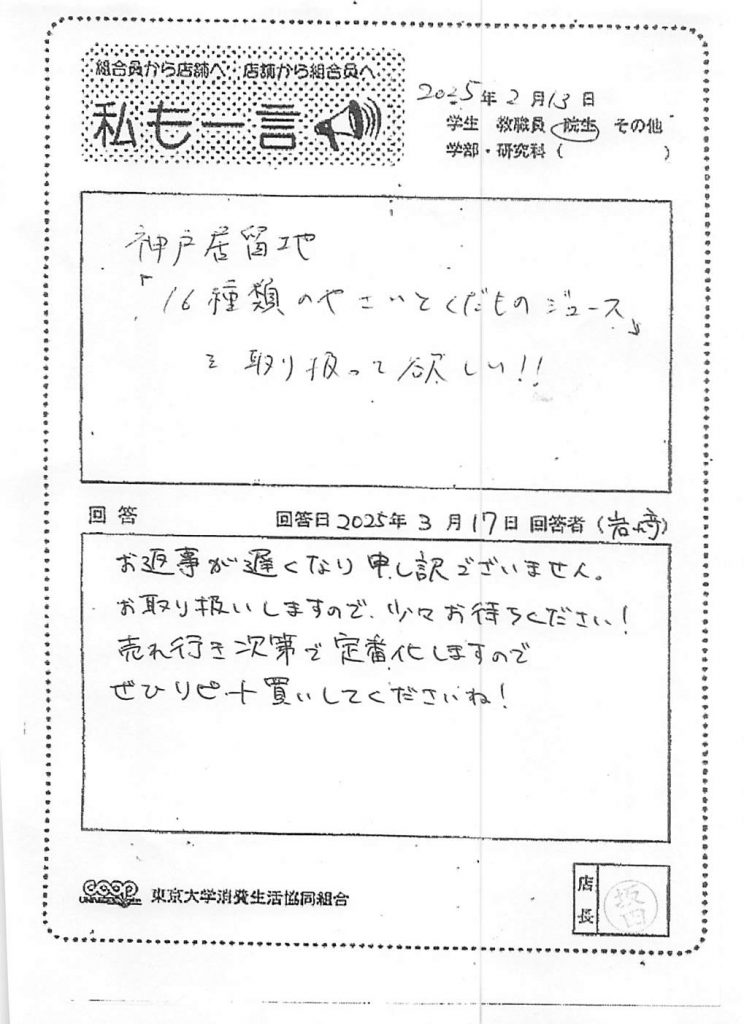 組合員から店舗へ・店舗から組合員へ
私も一言
2025年2月13日
学生 教職員 院生 その他
学部・研究科( )
神戸居留地
「16種類のやさいとくだものジュース」
を取り扱って欲しい!!
回答 回答日2025年3月17日 回答者(岩﨑)
お返事が遅くなり申し訳ございません。
お取り扱いしますので、少々お待ちください!
売れ行き次第で定番化しますので
ぜひリピート買いしてくださいね!
coop 東京大学消費生活協同組合
店長